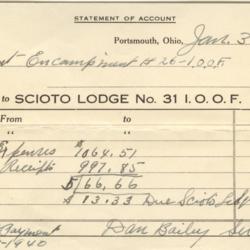 STATEMENT OF ACCOUNT
Portsmouth, Ohio, Jan. 3
Encampment # 26-I.O.O.F.
to SCIOTO LODGE No. 31 I. O. O. F.
From to
" "
Expenses $1064.51
Receipts 997.85
5)66.66
$13.33 Due Scioto
Payment Dan Bailey
-1940